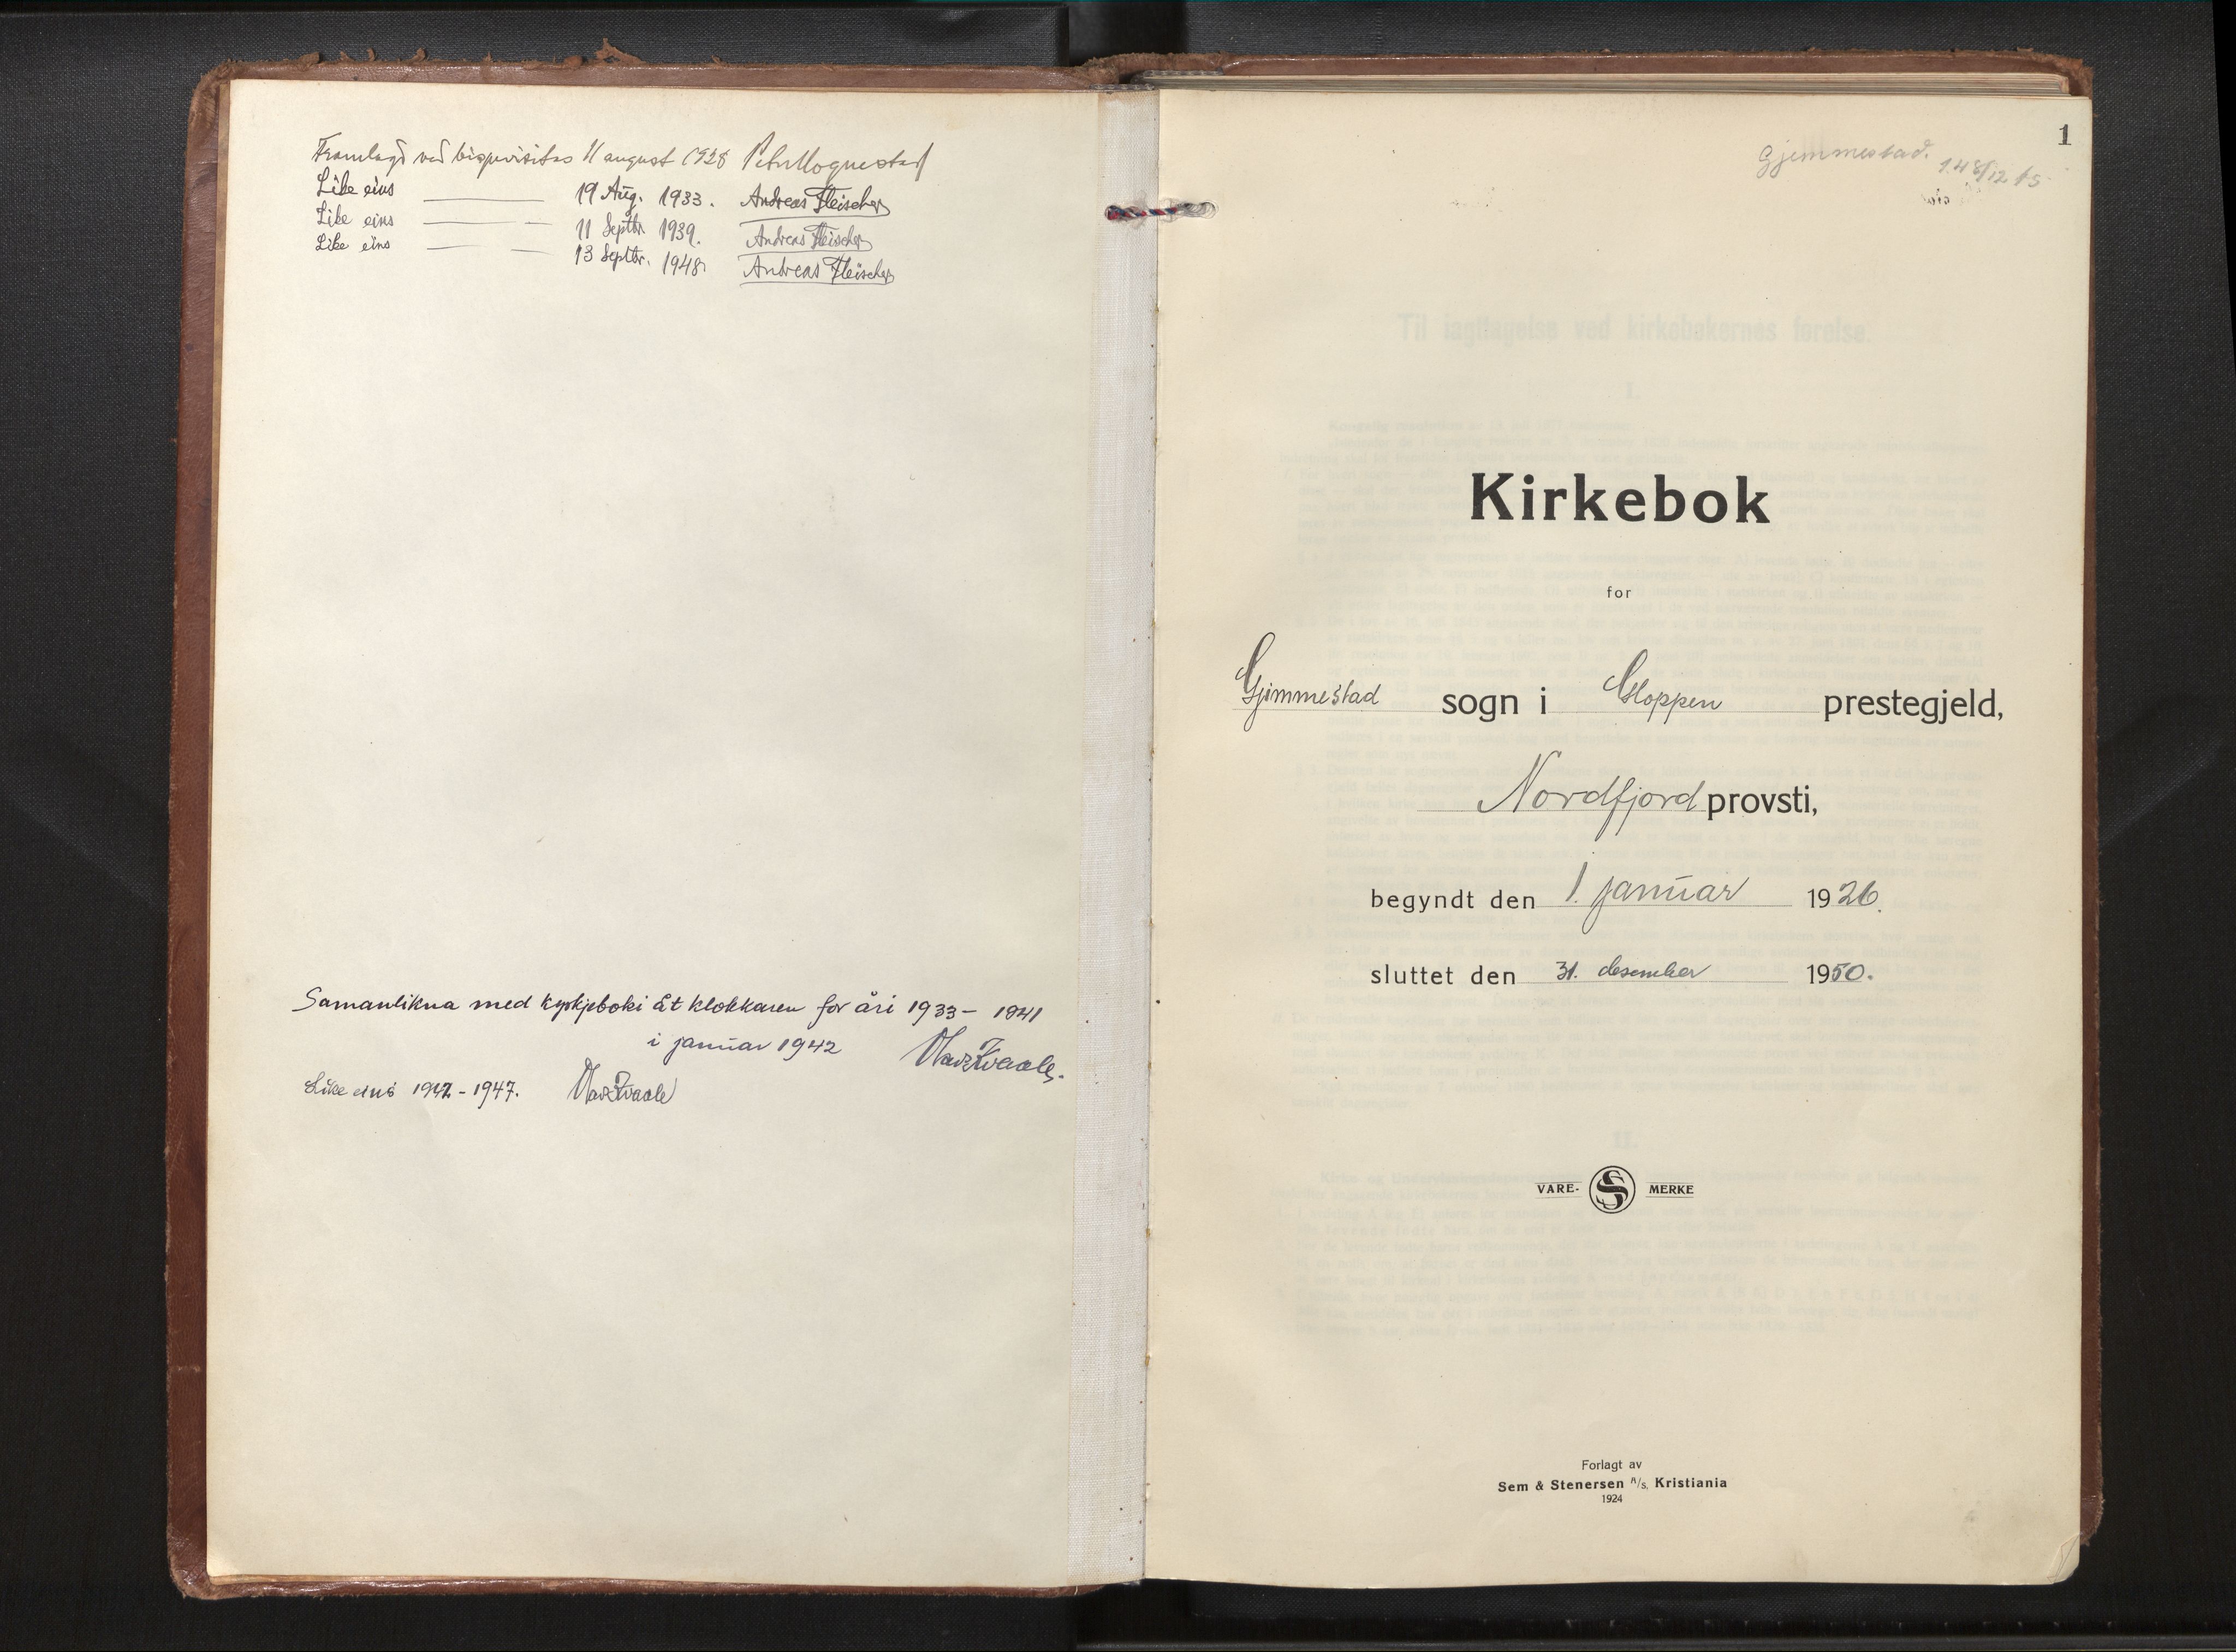 Framlagd ved bispevisitas 11 august 1928 Peter Hognestad
Like eins 19 Aug. 1933. Andreas Fleischer
Like eins 11 Septbr. 1939. Andreas Fleischer
Like eins 13 Septbr. 1948 Andreas Fleischer
Samanlikna med kyrkjeboki åt klokkaren for åri 1933 – 1941
i januar 1942 Olav Kvaale.
Like eins 1942 – 1947. Olav Kvaale
1
Gjemmestad.
Kirkebok
for
Gjimmestad sogn i Gloppen prestegjeld,
Nordfjord provsti,
begyndt den 1. januar 1926.
sluttet den 31. desember 1950.
VARE- S MERKE
Forlagt av
Sem & Stenersen A/s, Kristiania
1924